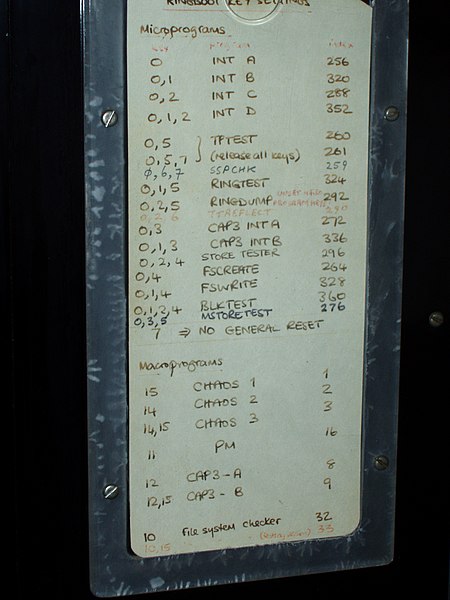 RINGBOOT KEY SETTINGS
Microprograms
Key Program Index
0 INT A 256
0,1 INT B 320
0,2 INT C 288
0,1,2 INT D 352
0,5 } TPTEST 260
0,5,7 } (release all keys) 261
0,6,7 SSPCHK 259
0,1,5 RINGTEST 324
0,2,5 RINGDUMP 292
0,2,6 290
0,3 CAP3 INT A 272
0,1,3 CAP3 INT B 336
0,2,4 STORE TESTER 296
0,4 FSCREATE 264
0,1,4 FSWRITE 328
0,1,2,4 BLKTEST 360
0,3,5 MSTORETEST 276
7 ⇒ NO GENERAL RESET
Macroprograms
15 CHAOS 1 1
14 CHAOS 2 2
14,15 CHAOS 3 3
11 PM 16
12 CAP3-A 8
12,15 CAP3-B 9
10 file system checker 32
10,15 33